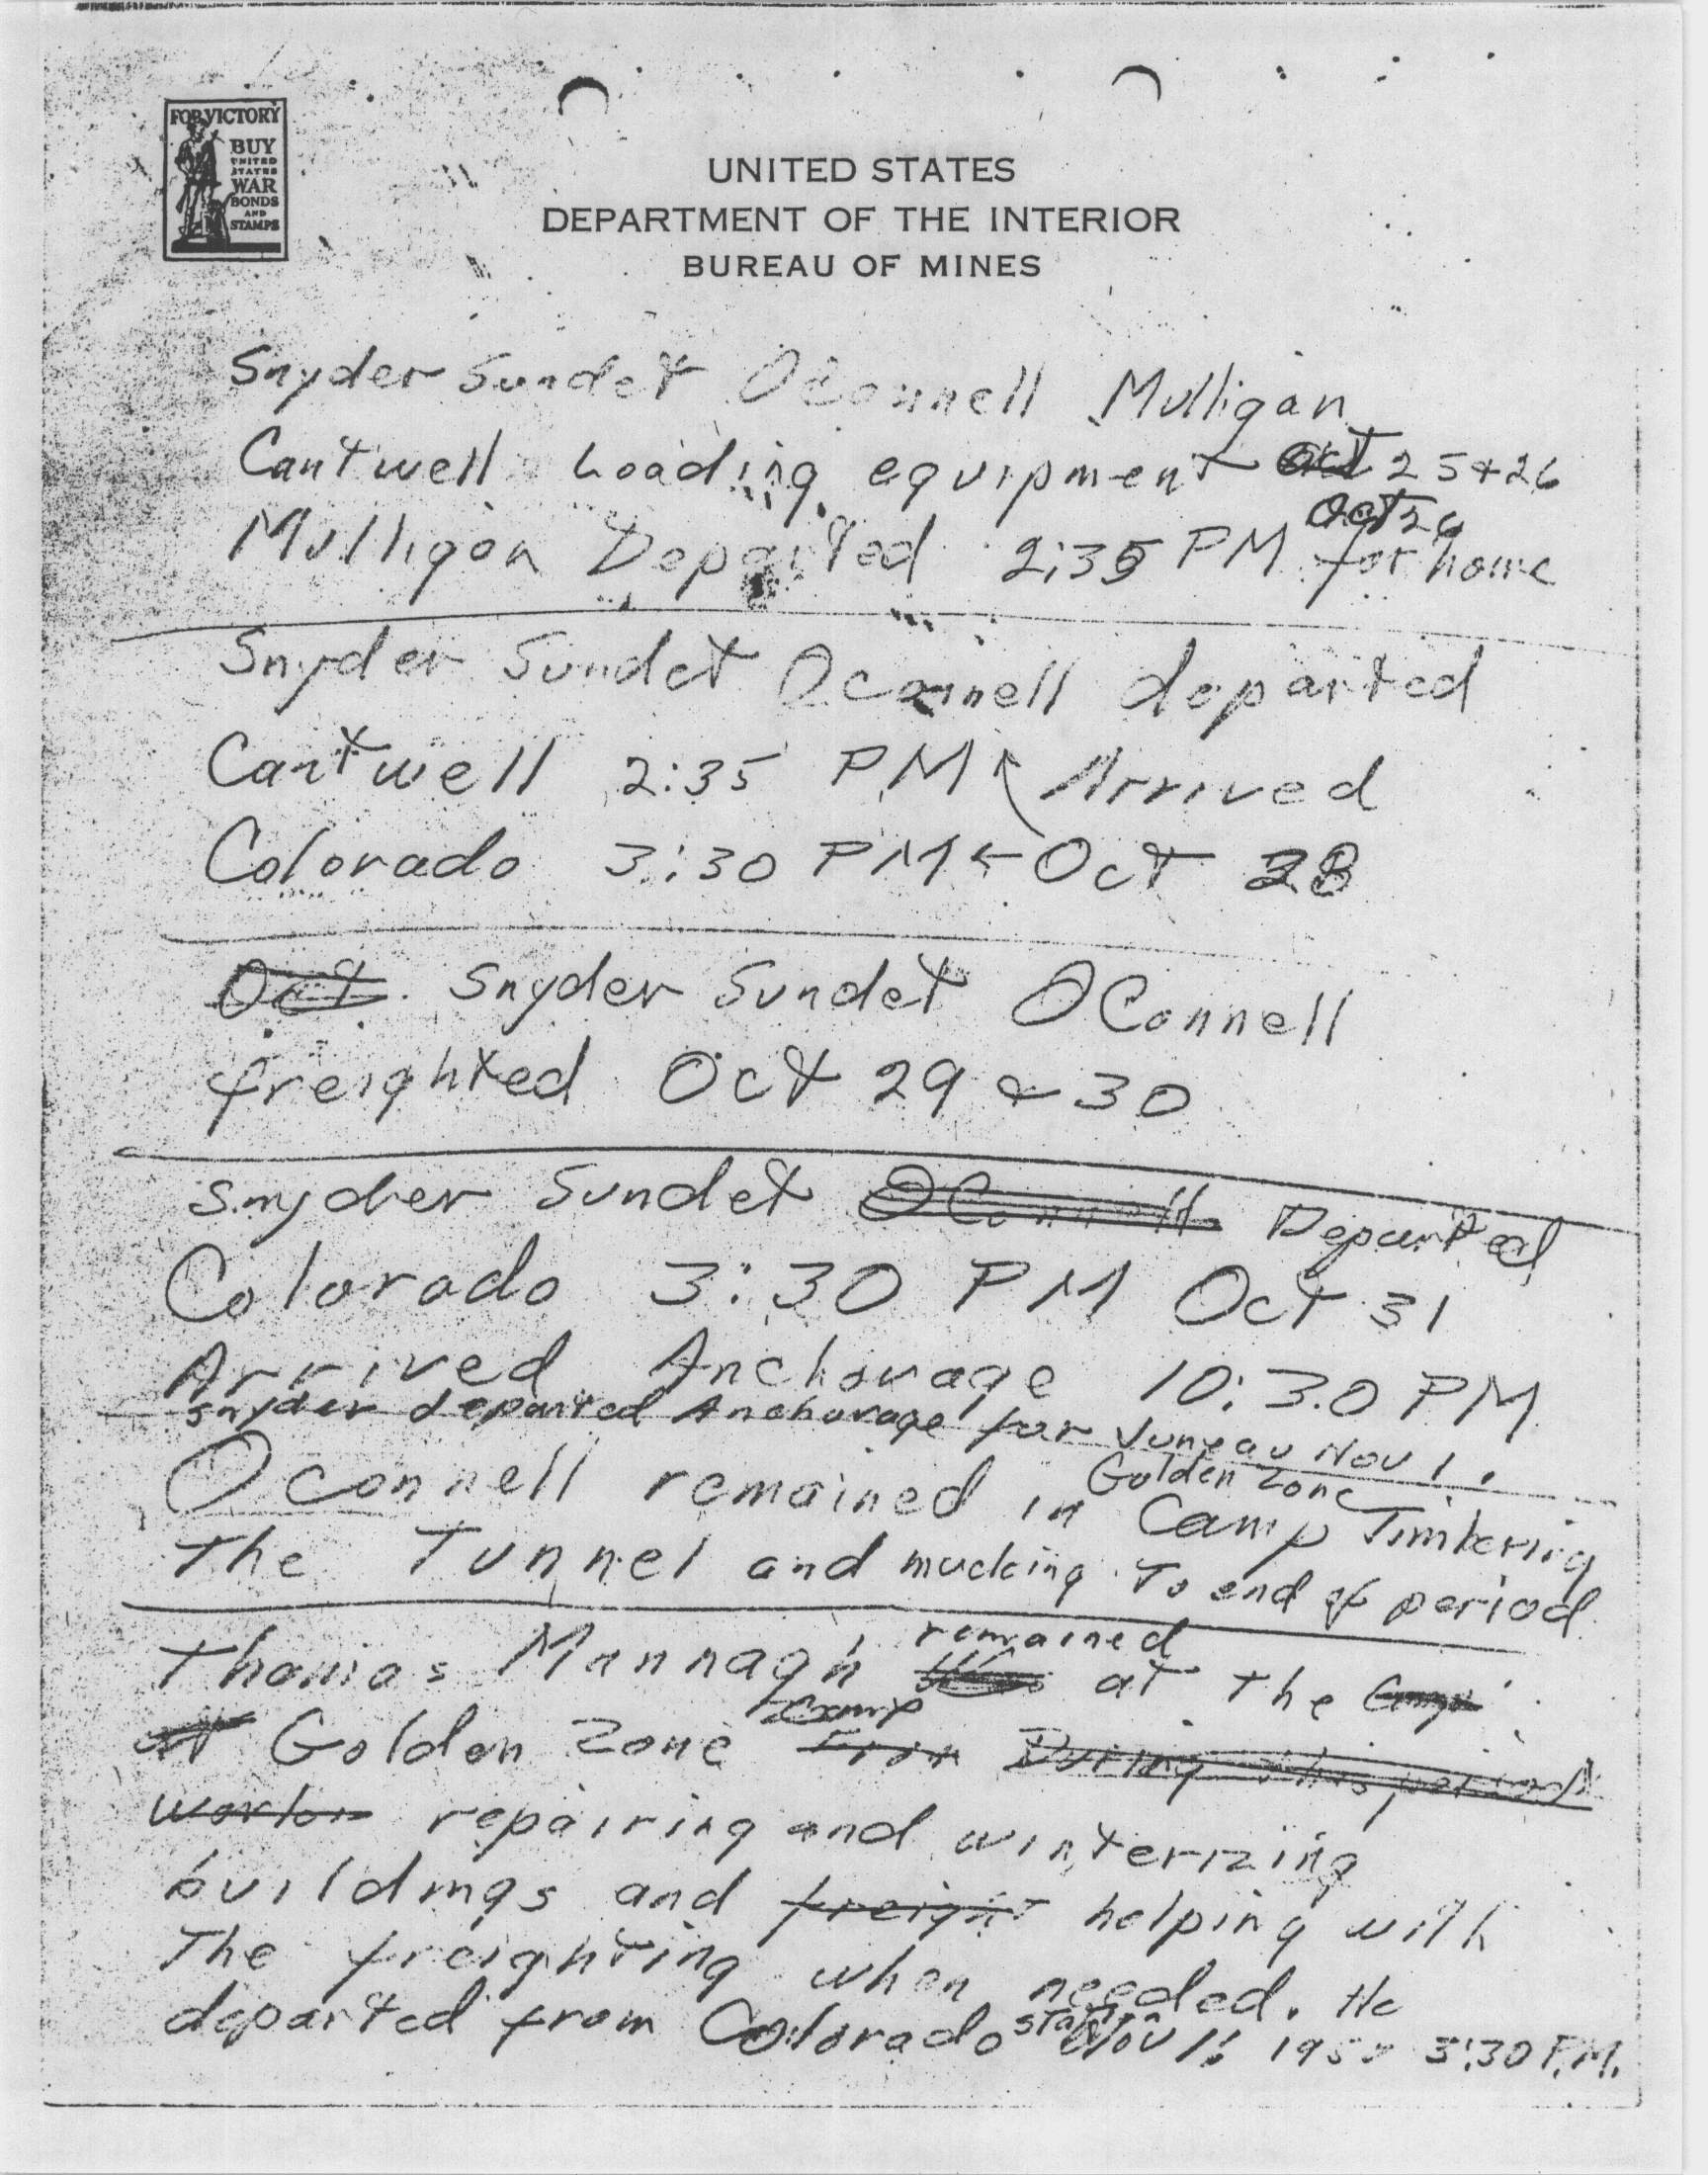 FOR VICTORY
BUY
UNITED
STATES
WAR
BONDS
AND
STAMPS
UNITED STATES
DEPARTMENT OF THE INTERIOR
BUREAU OF MINES
Snyder Sundet OConnell Mulligan
Cantwell Loading equipment Oct 25 & 26
Oct 26
Mulligan Departed 2:35 PM for home
Snyder Sundet Oconnell departed
Cantwell 2:35 PM ↖ Arrived
Colorado 3:30 PM ← Oct 28
Oct. Snyder Sundet OConnell
freighted Oct 29 & 30
Snyder Sundet OConnell Departed
Colorado 3:30 PM Oct 31
Arrived Anchorage 10:30 PM
Snyder departed Anchorage for Juneau Nov 1.
Golden Zone
Oconnell remained in Camp Timbering
The Tunnel and mucking To end of period
remained
Thomas Mannagh at the Camp
camp
at Golden Zone from During this period
work on repairing and winterizing
buildings and freight helping with
The freighting when needed. He
station
departed from Colorado Nov 1, 3:30 P.M.